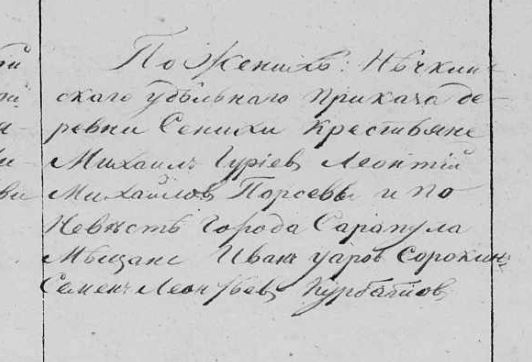 По Женихѣ: Нѣчкин-
скаго Удѣльнаго Приказа де-
ревни Сенихи Крестьяне
Михаилъ Гуріев, Леонтій
Михайлов и по
Невѣстѣ Города Сарапула
Мѣщане Иванъ Уаров Сорокин,
Семенъ Леонтьев Курбатов,